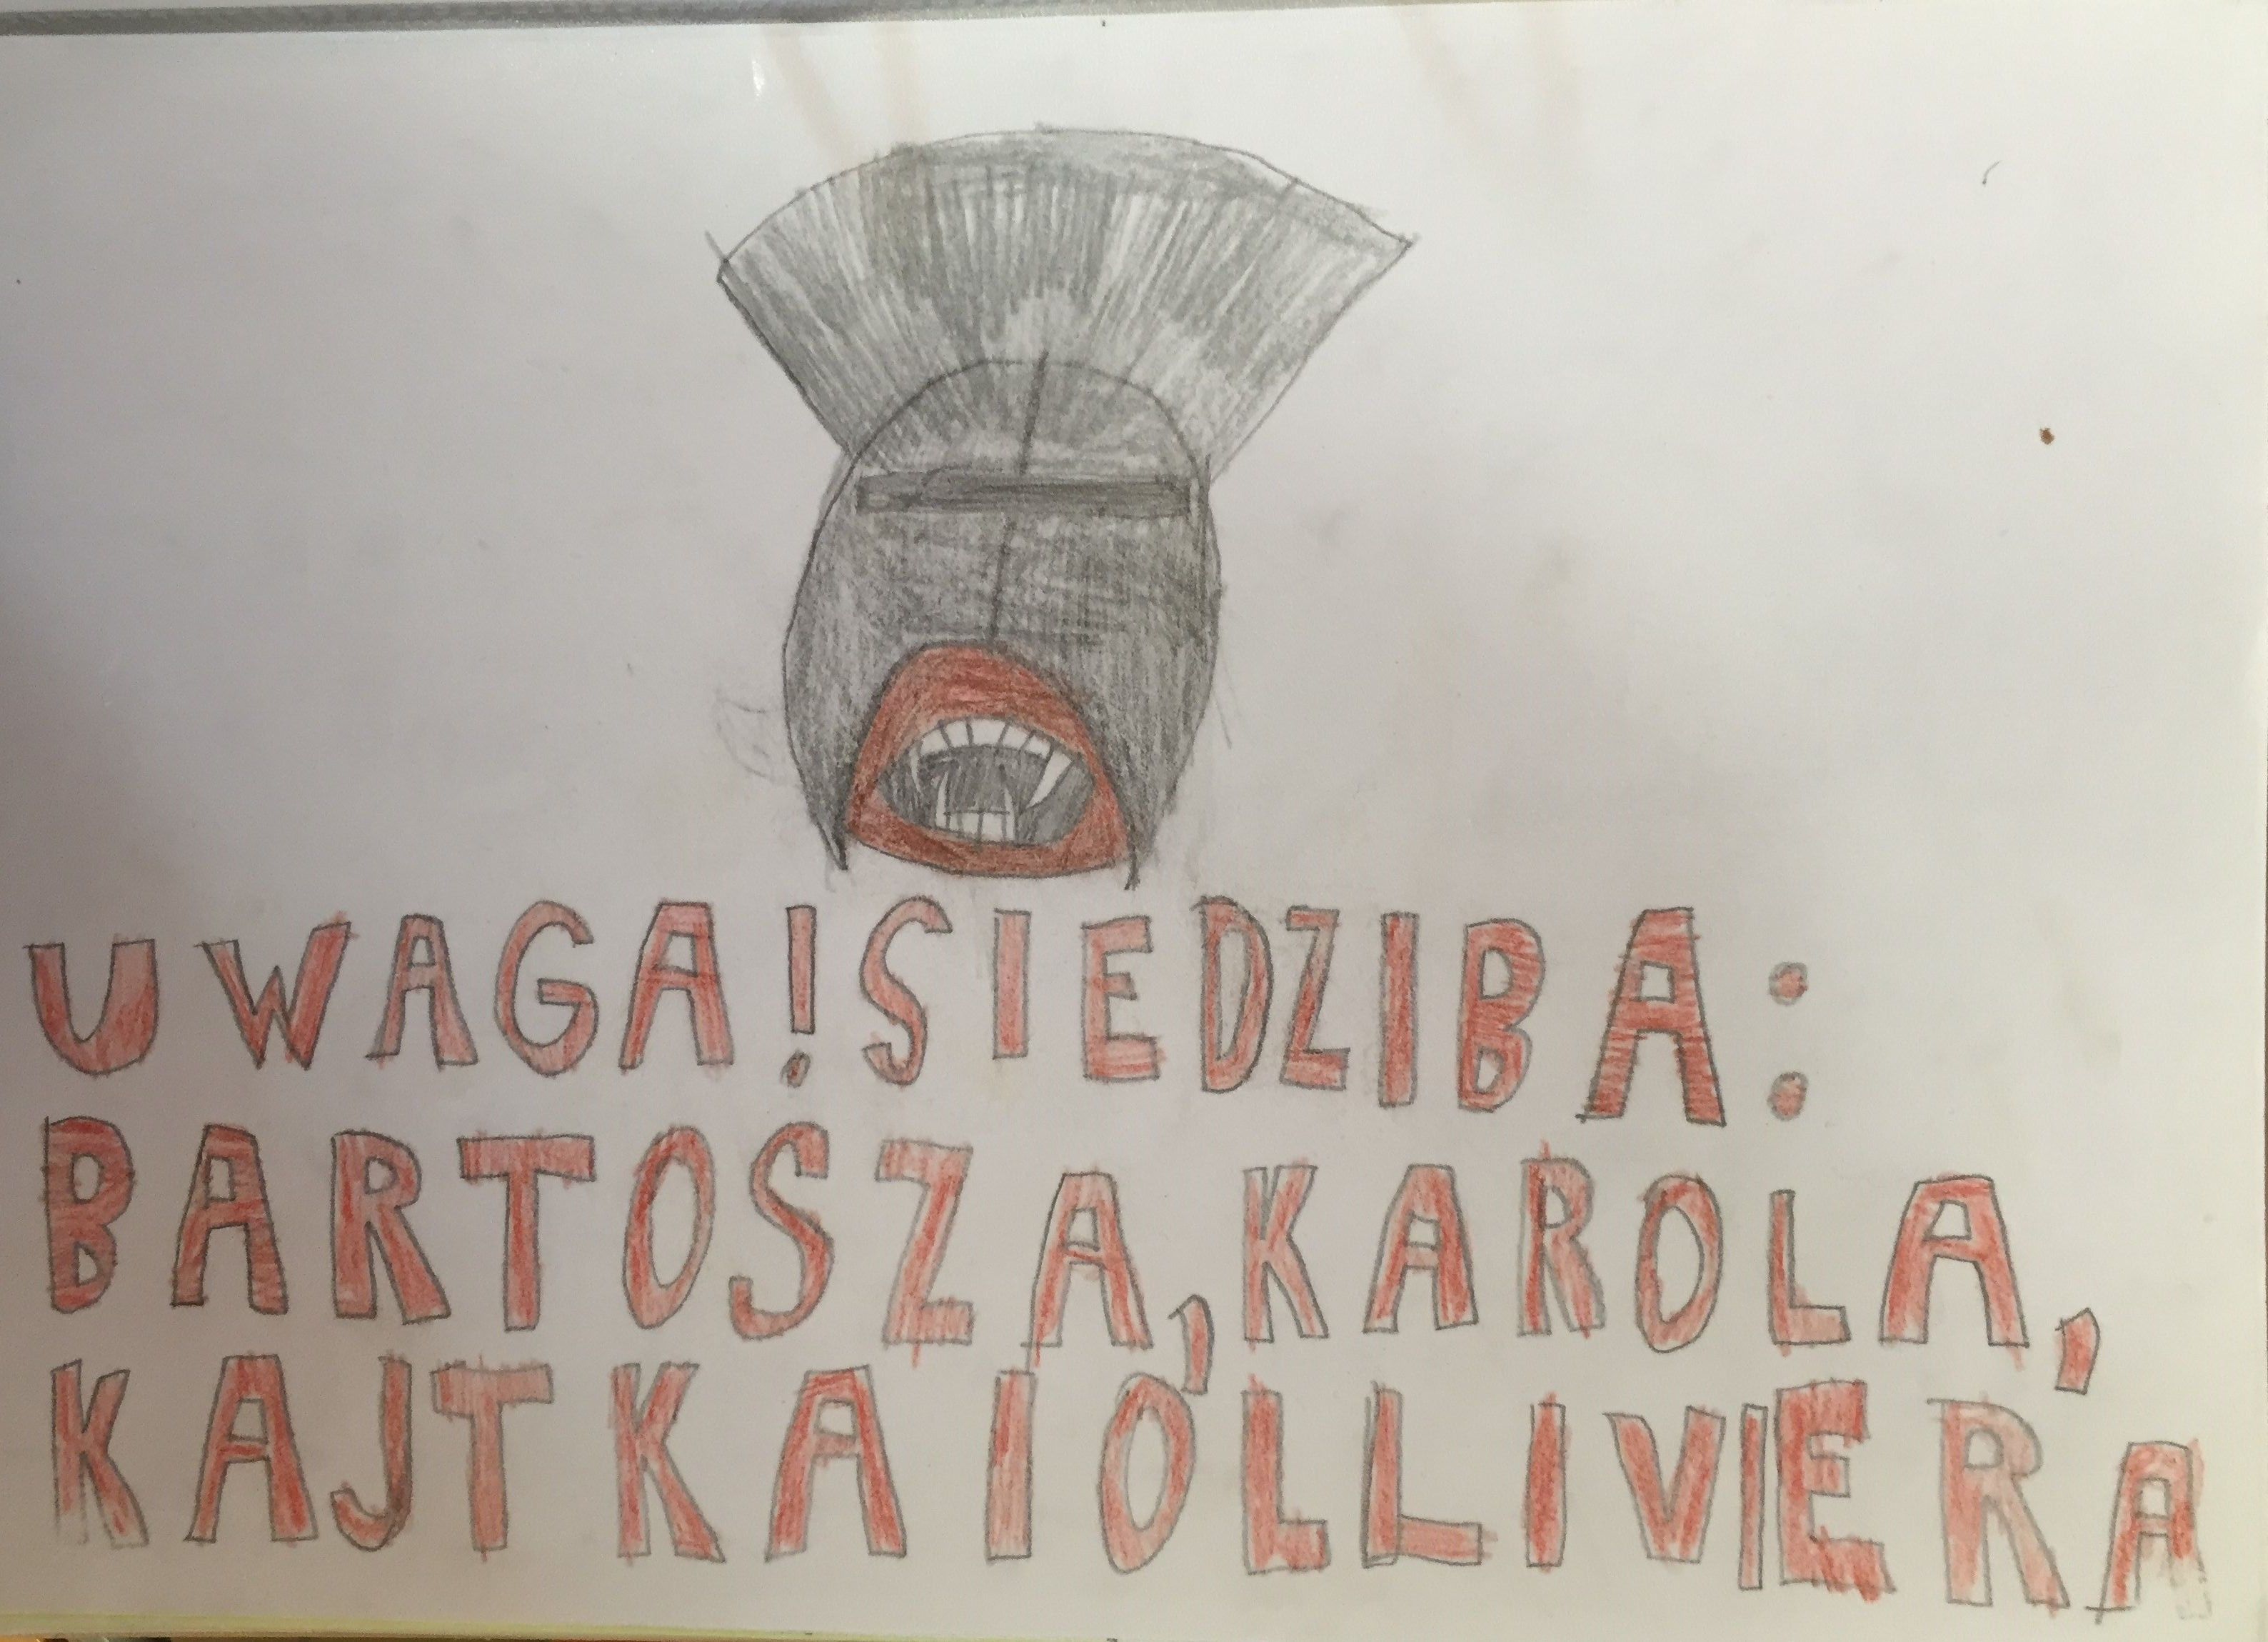 UWAGA! SIEDZIBA:
BARTOSZA, KAROLA,
KAJTKA I OLLIVIERA